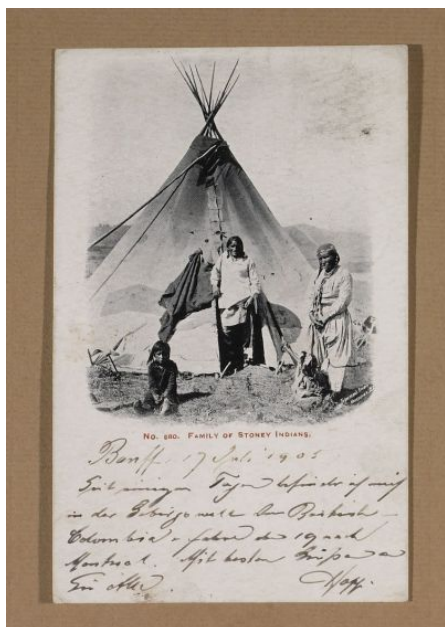 No. 580. Family of Stoney Indians.
Banff 17 Juli 1905
Seit einigen Tagen befinde ich mich
in der Gebirgswelt von British
Colombia u fahre den 19 nach
Montreal. Mit besten Grüßen